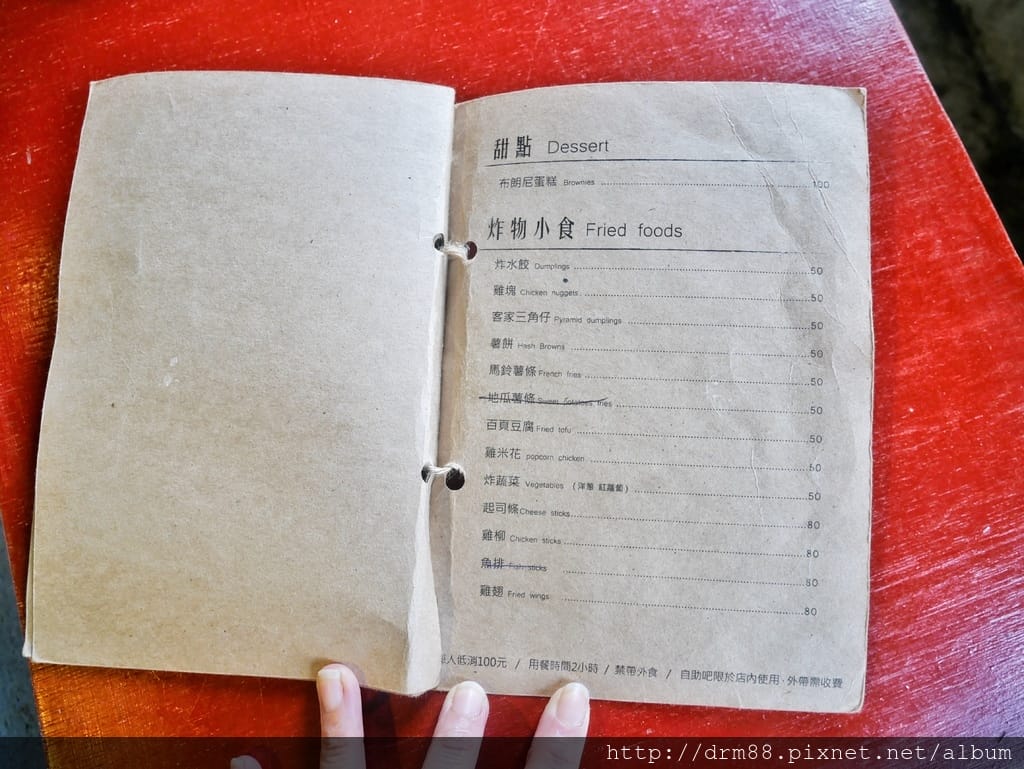 甜點 Dessert
布朗尼蛋糕 Brownies 100
炸物小食 Fried foods
炸水餃 Dumplings 50
雞塊 Chicken nuggets 50
客家三角仔 Pyramid dumplings 50
薯餅 Hash Browns 50
馬鈴薯條 French fries 50
地瓜薯條 Sweet potatoes fries 50
百頁豆腐 Fried tofu 50
雞米花 popcorn chicken 50
炸蔬菜 Vegetables (洋蔥 紅蘿蔔) 50
起司條 Cheese sticks 80
雞柳 Chicken sticks 80
魚排 Fish sticks 80
雞翅 Fried wings 80
人低消100元 / 用餐時間2小時 / 禁帶外食 / 自助吧限於店內使用,外帶需收費
http://drm88.pixnet.net/album